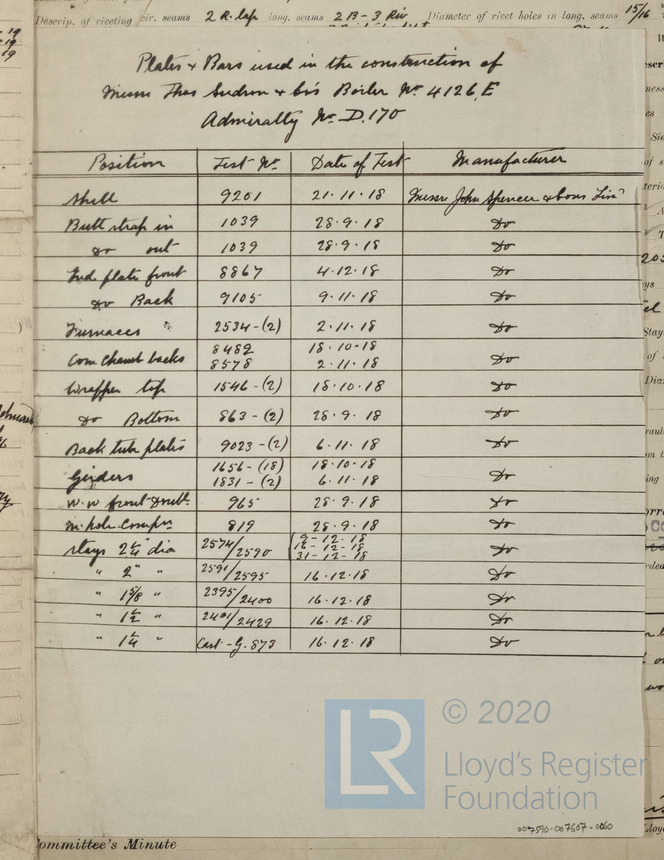 Descrip. of riveting cir. seams 2 R. lap long. seams 2 B - 3 Riv Diameter of rivet holes in long. seams 15/16
Plates & Bars used in the construction of
Messrs Thos Sudron & Co's Boiler No 4126.E
Admiralty No D.170
Position Test No. Date of Test Manufacturer
Shell 9201 21.11.18 Messrs John Spencer & Sons Limd
Butt strap in 1039 28.9.18 Do
do out 1039 28.9.18 Do
End plate front 8867 4.12.18 Do
do Back 9105 9.11.18 Do
Furnaces 2534-(2) 2.11.18 Do
Com Chamt backs 8482 18.10.18 Do
8578 2.11.18
Wrapper top 1546-(2) 18.10.18 Do
do Bottom 863-(2) 28.9.18 Do
Back tube plates 9023-(2) 6.11.18 Do
Girders 1656-(18) 18.10.18 Do
1831-(2) 6.11.18
W.W front 965 28.9.18 Do
M.hole 819 28.9.18 Do
Stays 2 1/4" dia 2574/2590 9-12-18 Do
12-18
31-12-18
" 2" " 2591/2595 16.12.18 Do
" 1 5/8 " 2395/2400 16.12.18 Do
" 1 1/2 " 2401/2429 16.12.18 Do
" 1 1/4 " Cast-G.873 16.12.18 Do
LR
© 2020
Lloyd's Register
Foundation
007590-007607-0060
Committee's Minute